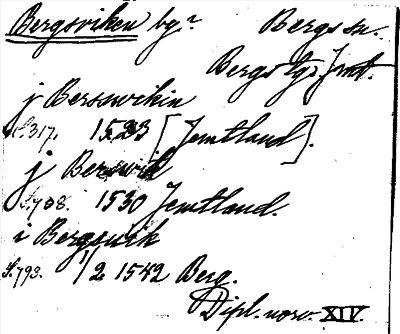 Bergsviken by.
Bergs sn.
Bergs tgs Jmt.
j Bersswikin
S. 317. 1533 [Jemtland].
j Berswik
S. 708. 1530 Jemtland.
i Bergsuik
S. 793. 1/2 1542 Berg.
Dipl. norv. XIV.